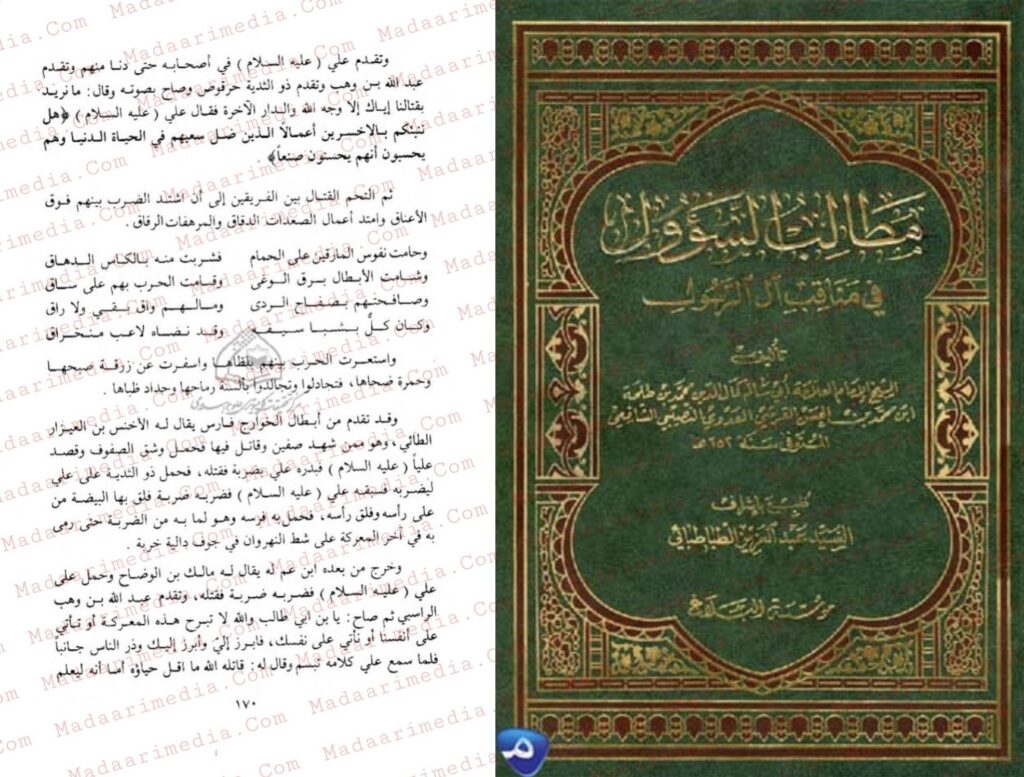 وتقدم علي ( عليه السلام ) في أصحابه حتى دنا منهم وتقدم
عبد الله بن وهب وتقدم ذو الثدية حرقوص وصاح بصوته وقال: ما نريد
بقتالنا إياك إلا وجه الله والدار الآخرة فقال علي ( عليه السلام ) ﴿هل
ننبئكم بالأخسرين أعمالاً الذين ضل سعيهم في الحياة الدنيا وهم
يحسبون أنهم يحسنون صنعاً﴾ .
ثم التحم القتال بين الفريقين إلى أن اشتد الضرب بينهم فوق
الأعناق وامتد أعمال الصعدات الدقاق والمرهفات الرقاق .
وحامت نفوس المارقين على الحمام فشربت منه بالكأس الدهاق
وشامت الأبطال برق الوغى وقامت الحرب بهم على ساق
وصافحتهم بصفاح الردى ومالهم واق بقي ولا راق
وكان كلّ بشبا سيفه وقد نضاه لاعب منحراق
واستعرت الحرب بينهم بلظاها واسفرت عن زرقة صبحها
وحمرة ضحاها، فتجادلوا وتجالدوا بألسنة رماحها وحداد ظباها .
وقد تقدم من أبطال الخوارج فارس يقال له الأخنس بن العيزار
الطائي، وهو ممن شهد صفين وقاتل فيها فحمل وشق الصفوف وقصد
علياً ( عليه السلام ) فبدره علي بضربة فقتله، فحمل ذو الثدية على علي
ليضربه فسبقه علي ( عليه السلام ) فضربه ضربة فلق بها البيضة من
على رأسه وفلق رأسه، فحمل به فرسه وهو لما به من الضربة حتى رمى
به في آخر المعركة على شط النهروان في جوف دالية خربة .
وخرج من بعده ابن عم له يقال له مالك بن الوضاح وحمل على
علي ( عليه السلام ) فضربه ضربة فقتله، وتقدم عبد الله بن وهب
الراسبي ثم صاح: يا بن أبي طالب والله لا تبرح هذه المعركة أو تأتي
على أنفسنا أو نأتي على نفسك، فابرز إليّ وأبرز إليك وذر الناس جانباً
فلما سمع علي كلامه تبسم وقال له: قاتله الله ما اقل حياؤه اما أنه ليعلم
١٧٠
مطالب السؤول
في مناقب آل الرسول
تأليف
الشيخ الإمام العلامة أبي سالم كمال الدين محمد بن طلحة
ابن محمد بن الحسن القرشي العدوي النصيبي الشافعي
المتوفى سنة ٦٥٢ هـ
طبع بإشراف
السيد عبد العزيز الطباطبائي
مؤسسة البلاغ
Madaarimedia.Com